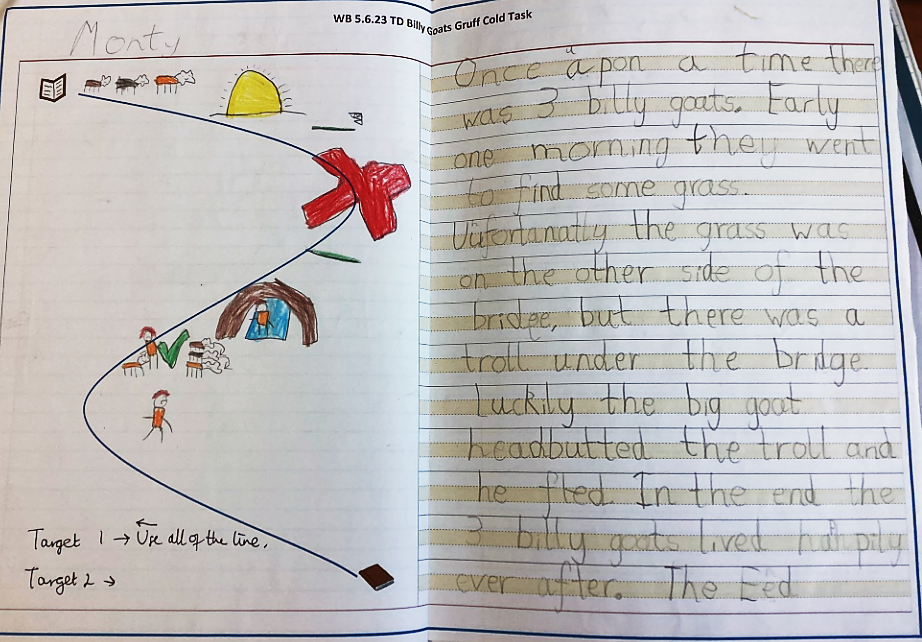 WB 5.6.23 TD Billy Goats Gruff Cold Task
Monty
Target 1 → Use all of the line.
Target 2 →
Once upon a time there
was 3 billy goats. Early
one morning they went
to find some grass.
Unfortanatly the grass was
on the other side of the
bridge, but there was a
troll under the bridge.
Luckily the big goat
headbutted the troll and
he fled In the end the
3 billy goats lived happily
ever after. The Eed